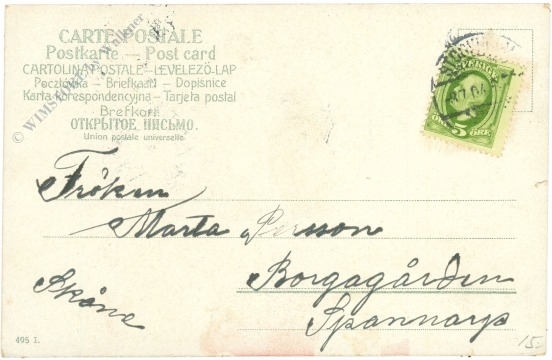 CARTE POSTALE
Postkarte — Post card
CARTOLINA POSTALE — LEVELEZŐ-LAP
Pocztówka — Briefkaart — Dopisnice
Karta korespondencyjna — Tarjeta postal
Brefkort
ОТКРЫТОЕ ПИСЬМО.
Union postale universelle
© WIMSTORE by Walkner
SVERIGE
5 ÖRE
Fröken
Marta Persson
Borgagården
Skåne
Spannarp
495 I.
15.-